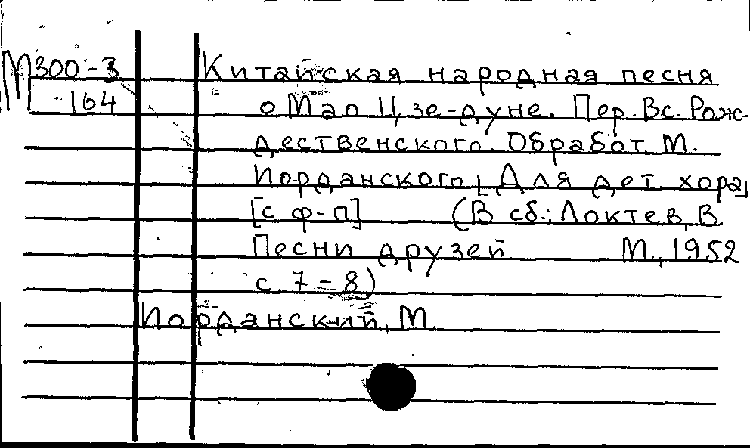 М 300-3 Китайская народная песня
164 о Мао Цзе-дуне. Пер. Вс. Рож-
дественского. Обработ. М.
Иорданского [Для дет. хора]
[с ф-п] (В сб.: Локтев, В.
Песни друзей М., 1952
с. 7-8)
Иорданский, М.